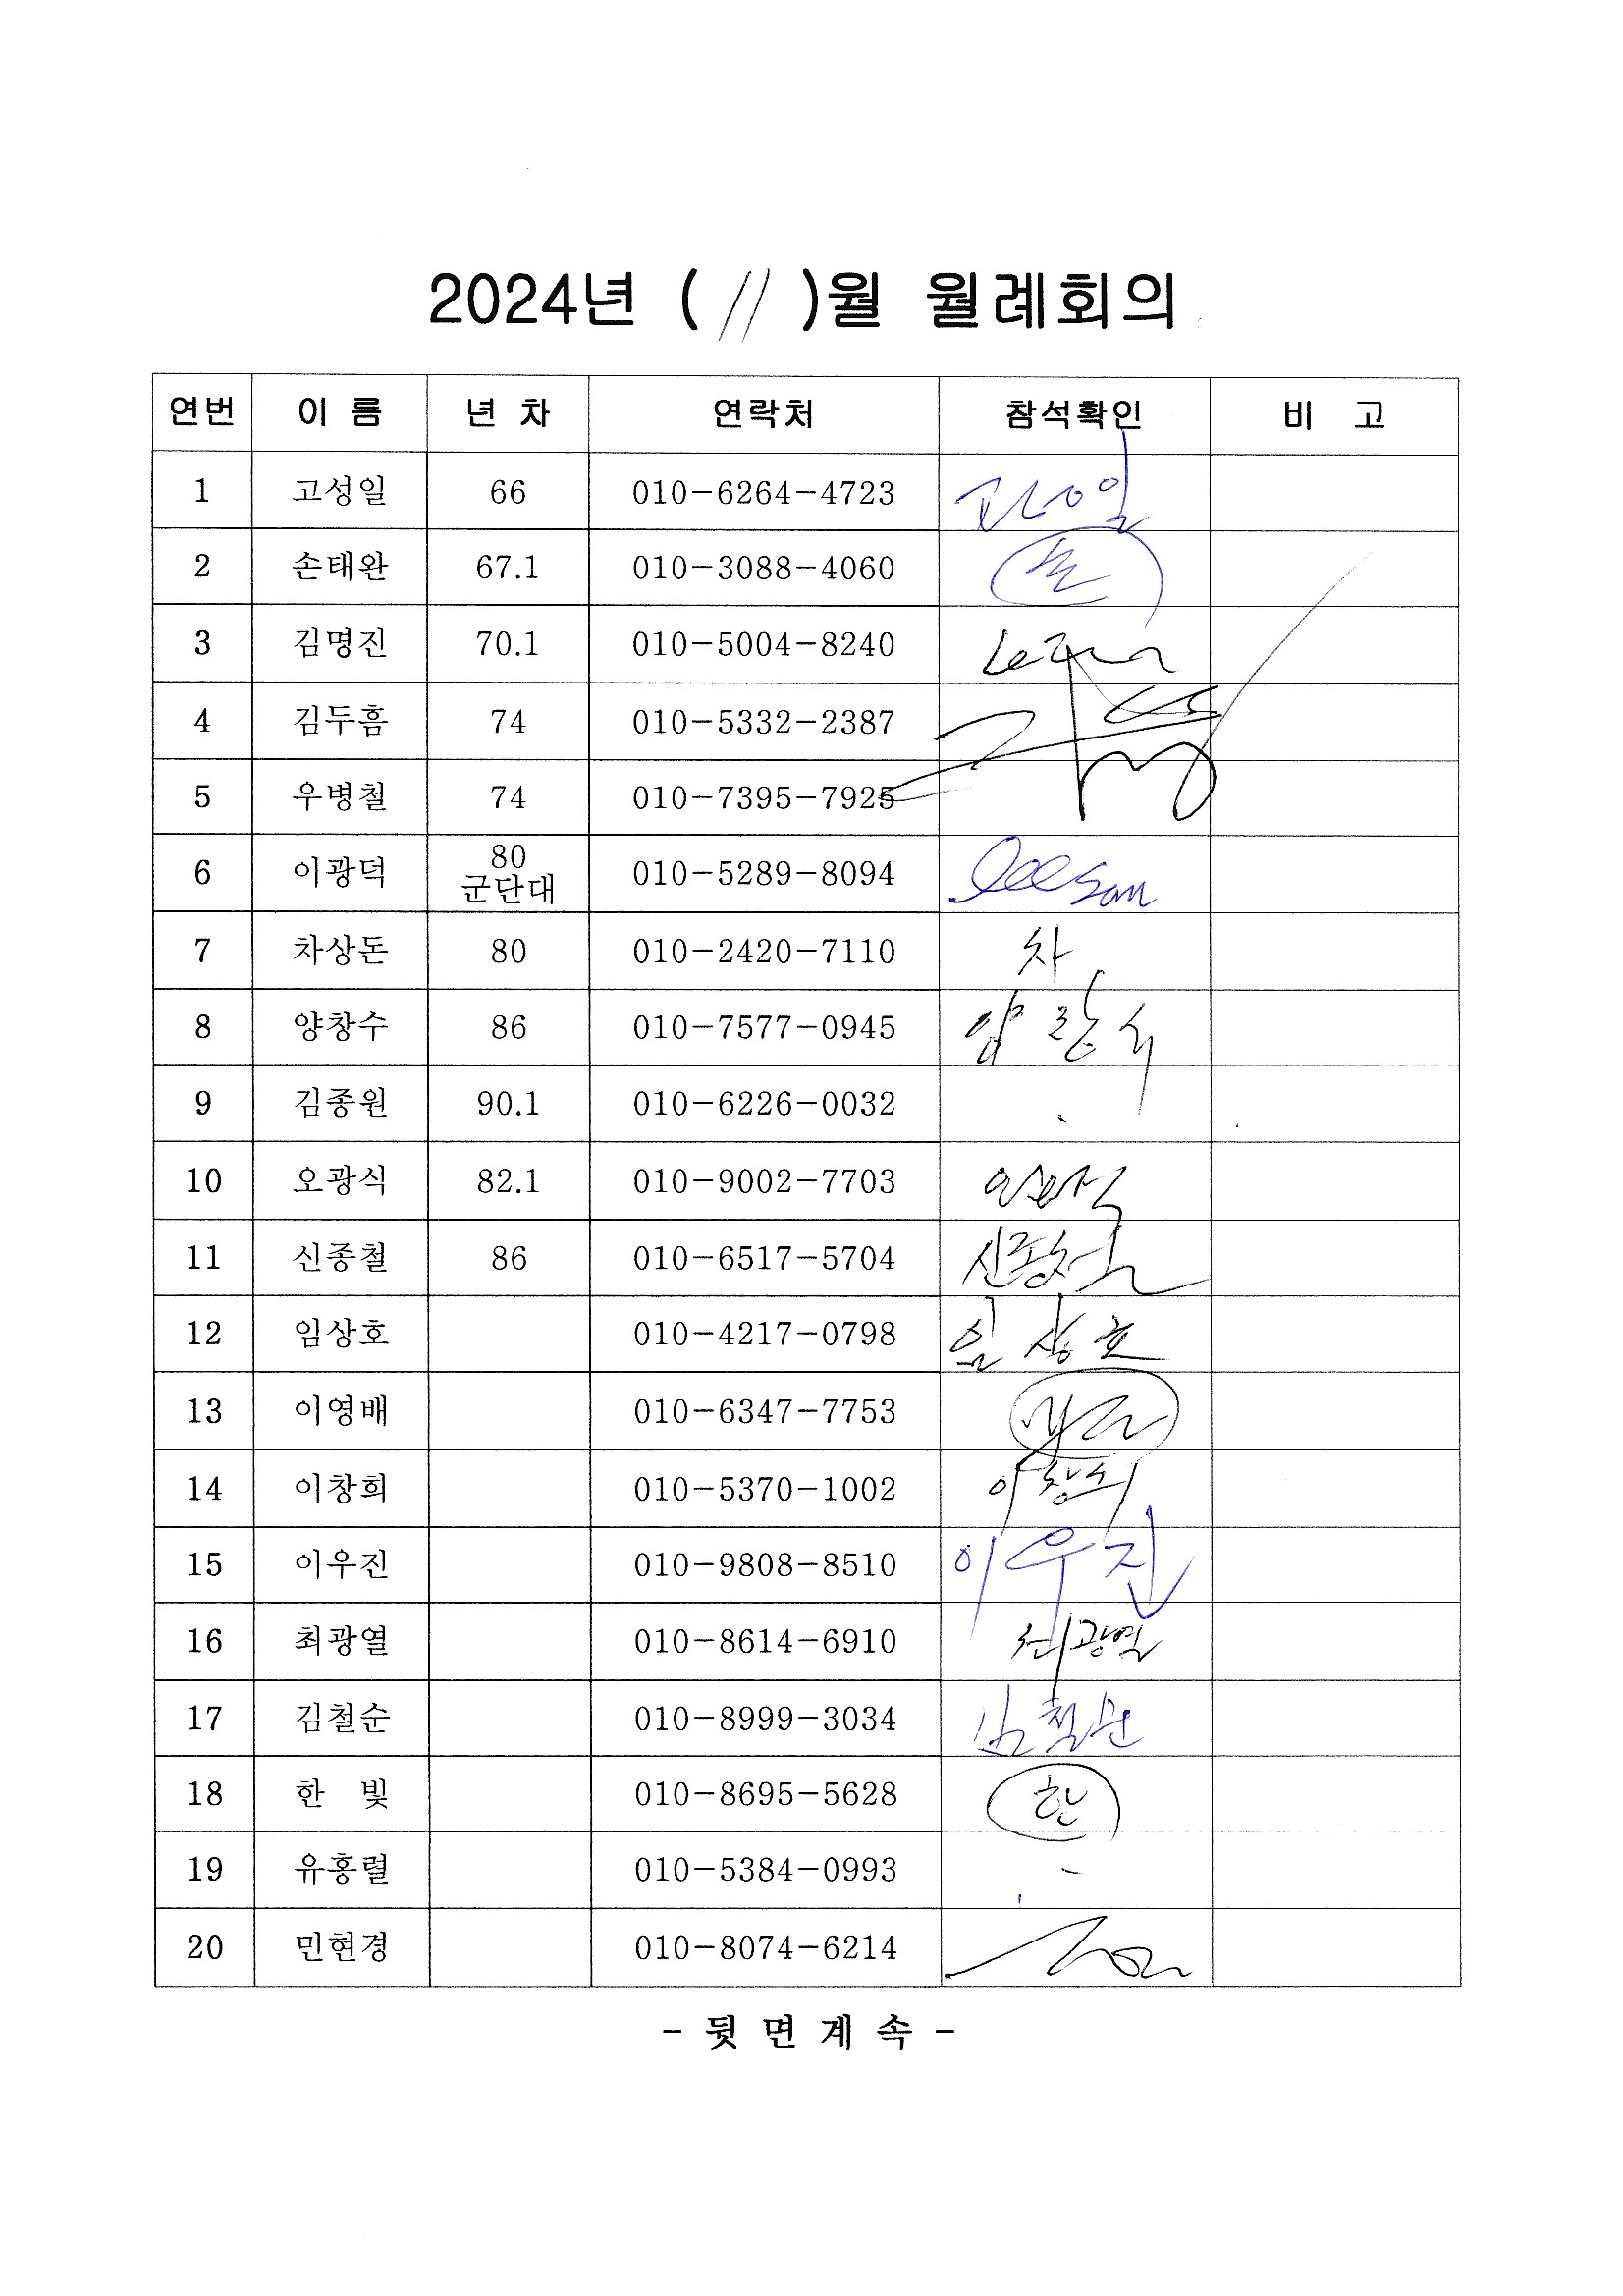 2024년 ( 11 )월 월례회의
연번 이 름 년 차 연락처 참석확인 비 고
1 고성일 66 010-6264-4723 고성일
2 손태완 67.1 010-3088-4060 손
3 김명진 70.1 010-5004-8240
4 김두흠 74 010-5332-2387
5 우병철 74 010-7395-7925
6 이광덕 80 군단대 010-5289-8094
7 차상돈 80 010-2420-7110 차
8 양창수 86 010-7577-0945 양창수
9 김종원 90.1 010-6226-0032
10 오광식 82.1 010-9002-7703 오광식
11 신종철 86 010-6517-5704 신종철
12 임상호 010-4217-0798 임상호
13 이영배 010-6347-7753
14 이창희 010-5370-1002 이창희
15 이우진 010-9808-8510 이우진
16 최광열 010-8614-6910 최광열
17 김철순 010-8999-3034 김철순
18 한 빛 010-8695-5628 한
19 유홍렬 010-5384-0993
20 민현경 010-8074-6214
- 뒷 면 계 속 -